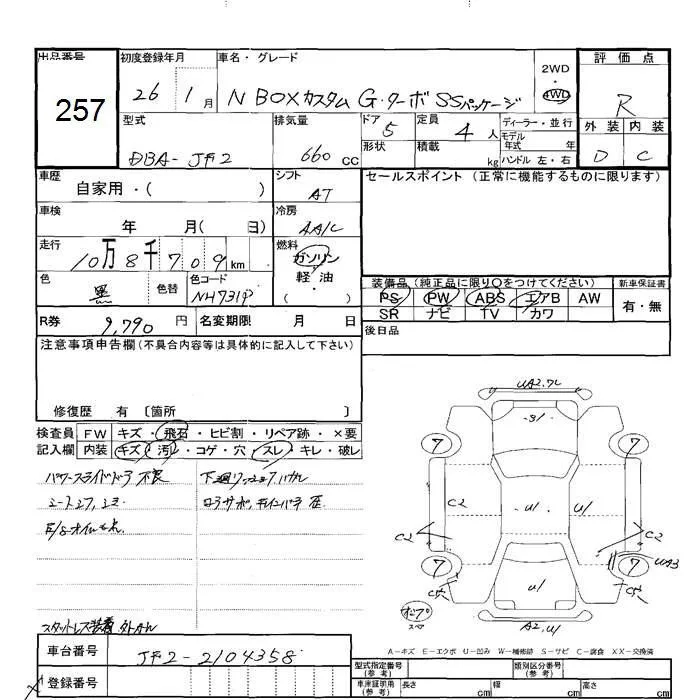 出品番号 初度登録年月 車名・グレード 2WD 評価点
257 26 1月 N BOXカスタム G・ターボ SSパッケージ 4WD R
外装 内装
D C
型式 排気量 ドア 定員 ディーラー・並行
DBA-JF2 660 CC 5 4人 モデル年式 年
形状 積載 kg ハンドル 左・右
車歴 自家用・( ) シフト AT セールスポイント (正常に機能するものに限ります)
車検 年 月( 日) 冷房 AA/C
走行 10万8千709km 燃料 ガソリン
軽油
・( )
色 黒 色替 色コード NH731P
装備品(純正品に限り○をつけてください) 新車保証書
PS PW ABS エアB AW 有・無
SR ナビ TV カワ
R券 9,790円 名変期限 月 日 後日品
注意事項申告欄(不具合内容等は具体的に記入して下さい)
修復歴 有 〔箇所 〕
検査員 FW キズ・飛石・ヒビ割・リペア跡・×要
記入欄 内装 キズ・汚・コゲ・穴・スレ・キレ・破レ
パワースライドドア不良
スタットレス装着
車台番号 JF2-2104358
登録番号
7 7
C2 C2
7 7
UA3
スペア
A2,U/
A-キズ E-エクボ U-凹み W-補修跡 S-サビ C-腐食 XX-交換済
型式指定番号(参考) 類別区分番号(参考)
車庫証明用(参考) 長さ cm 幅 cm 高さ cm